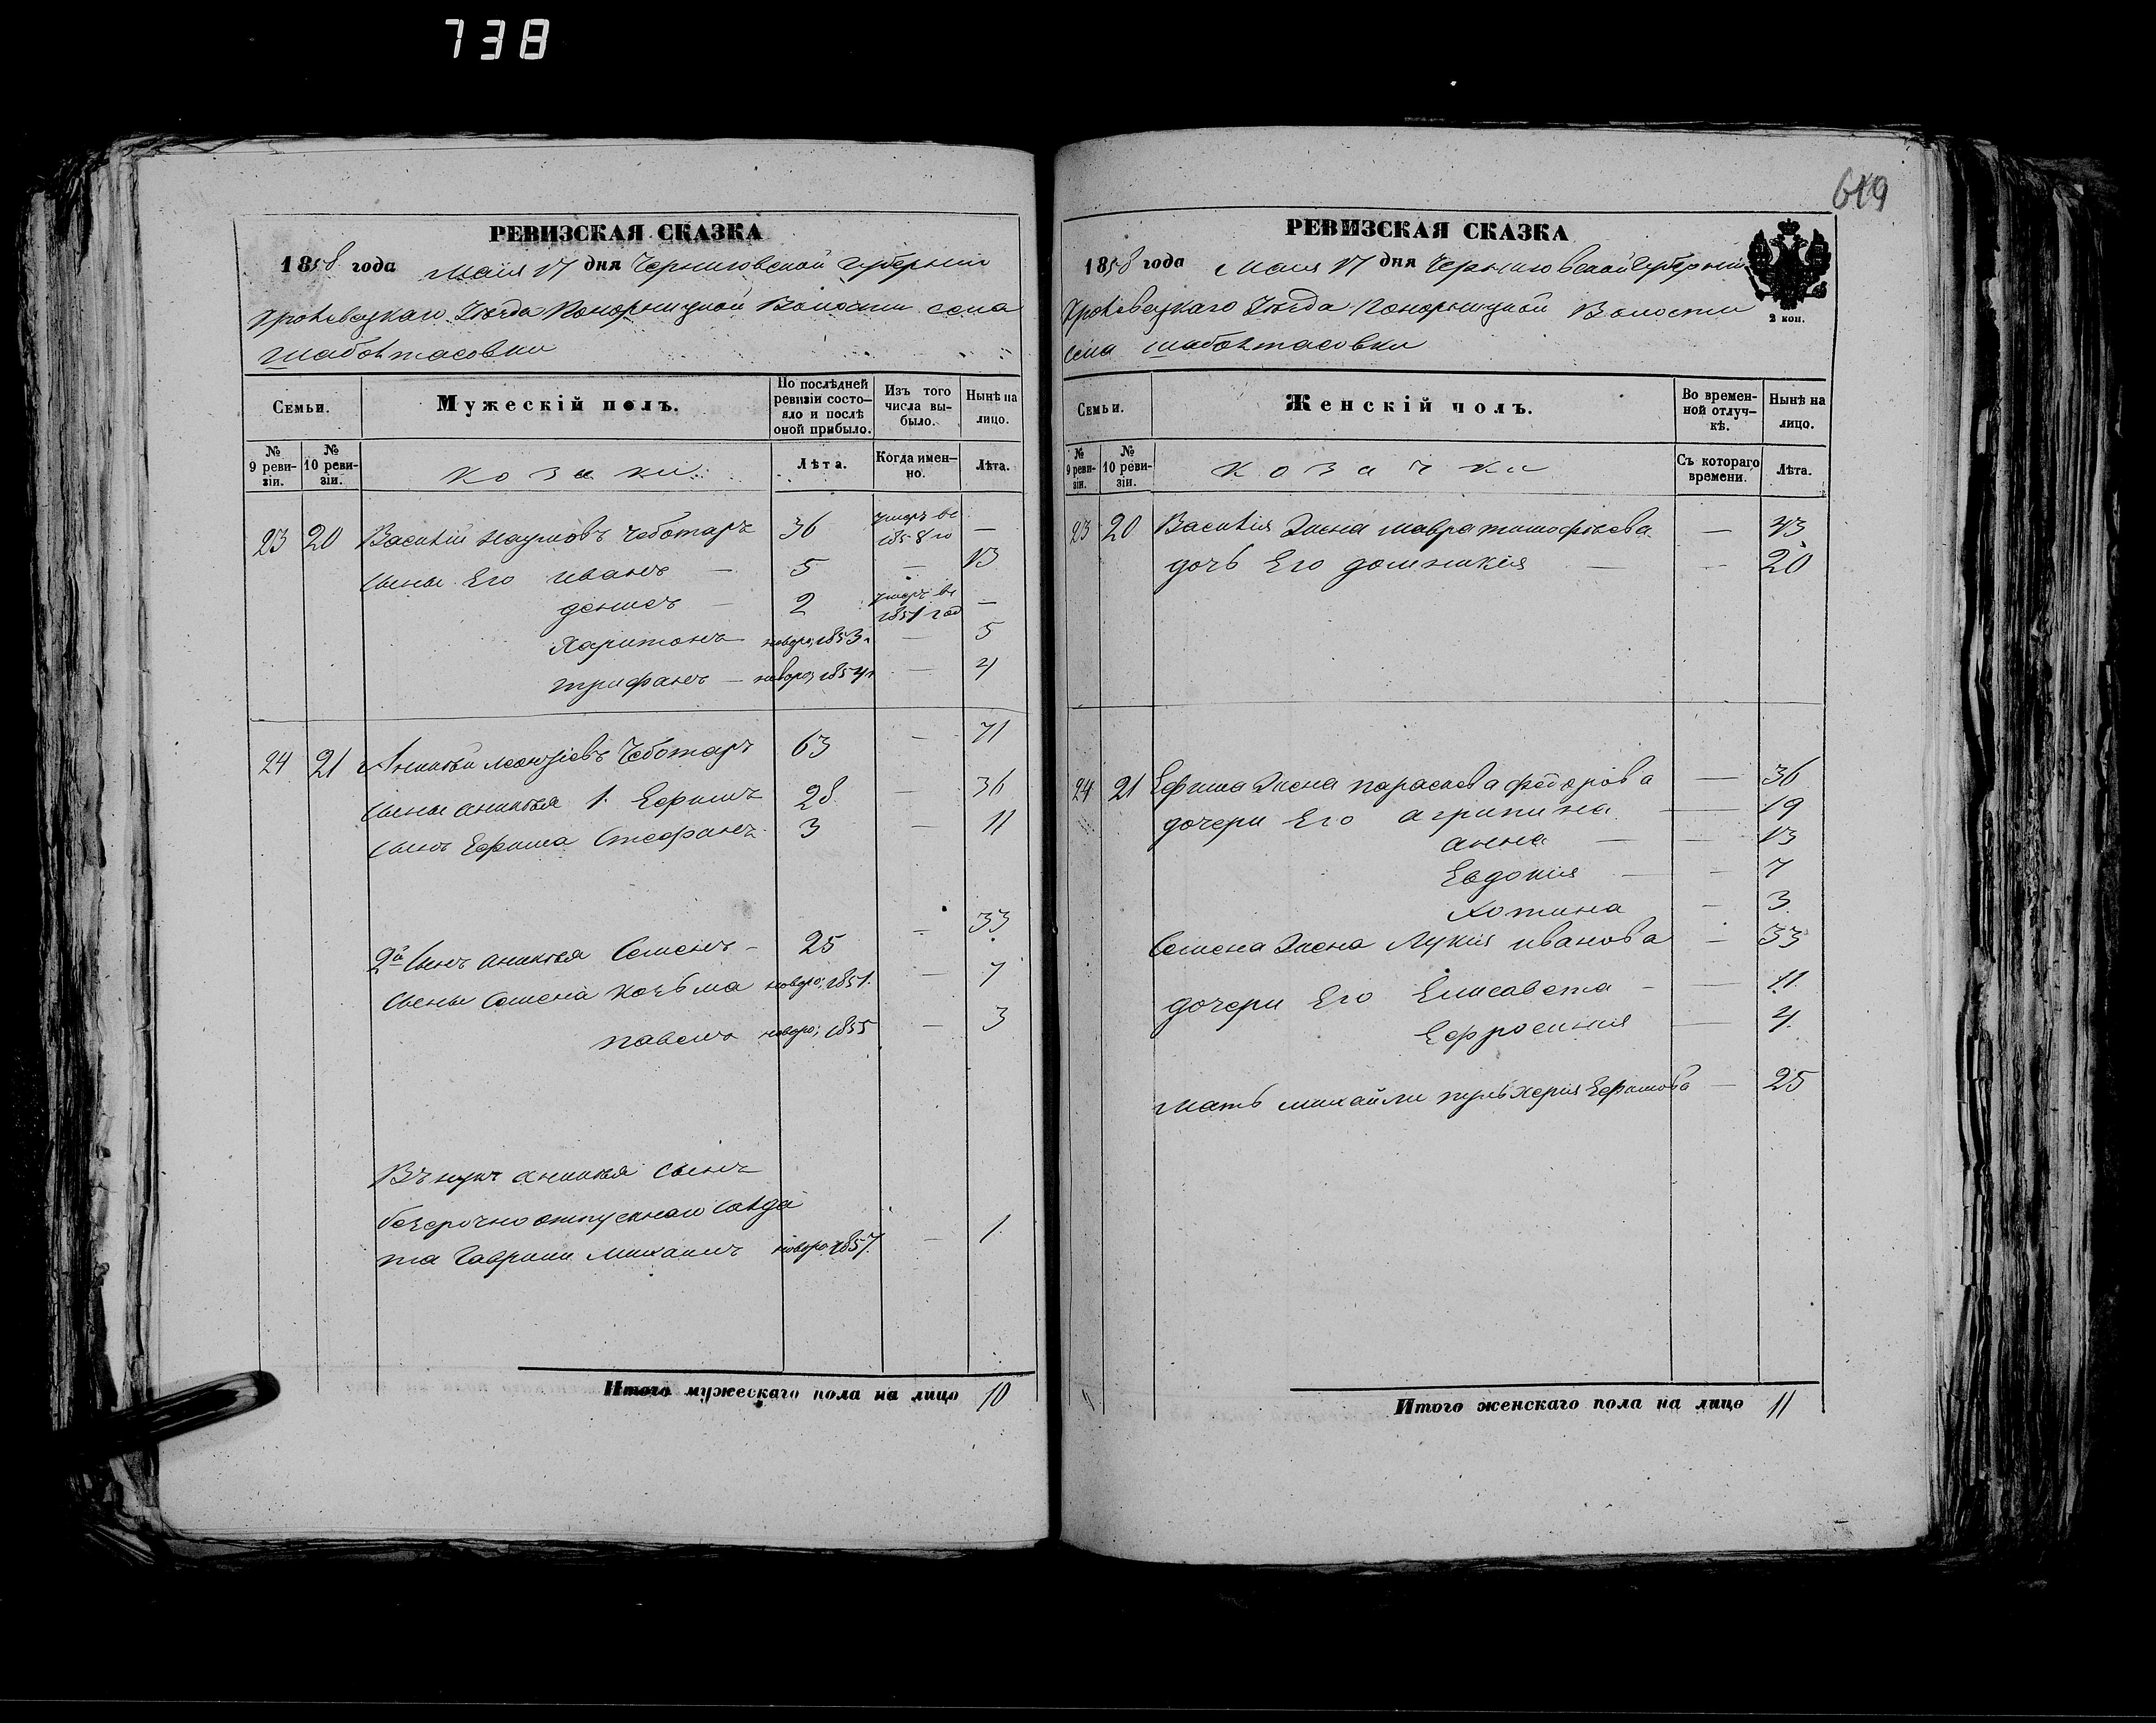 738
619
РЕВИЗСКАЯ СКАЗКА
1858 года Маія 17 дня Черниговской Губерніи
Кролевецкаго Уѣзда Понорницкой Волости села
Шабалтасовки
Семьи.
Мужескій полъ.
По послѣдней ревизіи состояло и послѣ оной прибыло.
Изъ того числа выбыло.
Нынѣ на лицо.
№ 9 ревизіи.
№ 10 ревизіи.
козаки
Лѣта.
Когда именно.
Лѣта.
23 20 Василій Наумовъ Чеботаръ 36 умеръ въ 1858 го —
сыны Его иванъ — 5 — 13
денисъ — 2 умеръ въ 1851 год —
Харитонъ новоро; 1853 — 5
трифанъ — новоро; 1854 — 4
24 21 Аникѣй Леонтіевъ Чеботаръ 63 — 71
сыны аникѣя 1. Ефимъ 28 — 36
сынъ Ефима Стефанъ 3 — 11
2й сынъ аникѣя Семенъ — 25 — 33
сыны Семена козьма новоро; 1851. — 7
павелъ новоро; 1855 — 3
Внукъ аникѣя сынъ
безсрочно отпускнаго солда
та Гаврилы Михаилъ новоро; 1857. — 1
Итого мужескаго пола на лицо 10
РЕВИЗСКАЯ СКАЗКА
1858 года Маія 17 дня Черниговской Губерніи
Кролевецкаго Уѣзда Понорницкой Волости
села шабалтасовки
2 коп.
Семьи.
Женскій полъ.
Во временной отлучкѣ.
Нынѣ на лицо.
№ 9 ревизіи.
№ 10 ревизіи.
козачки
Съ котораго времени.
Лѣта.
23 20 Василія жена мавра тимофѣева — 43
дочь Его домникія — — 20
24 21 Ефима жена параскева федорова — 36
дочери Его агрипина — 19
анна — — 13
Евдокія — — 7
Хотина — 3
Семена жена Лукія иванова — 33
дочери Его Елисавета — — 11
Ефросинія — 4
Мать михайли пульхерія Ефимова — 25
Итого женскаго пола на лицо 11